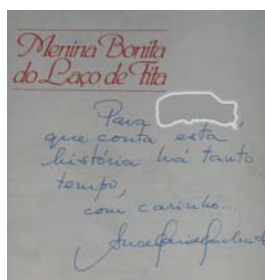 Menina Bonita
do Laço de Fita
Para ,
que conta esta
história há tanto
tempo,
com carinho...